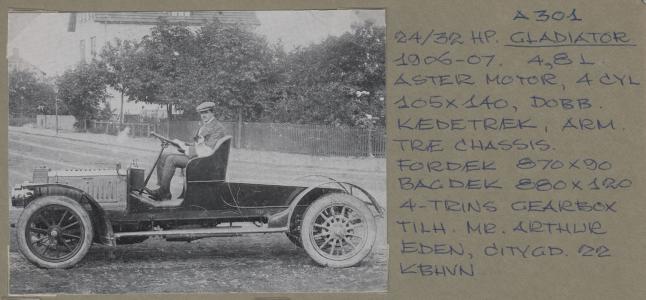 A 301
24/32 HP. GLADIATOR
1906-07. 4,8 L.
ASTER MOTOR, 4 CYL
105X140, DOBB.
KÆDETRÆK, ARM.
TRÆ CHASSIS.
FORDÆK 870X90
BAGDÆK 880X120
4-TRINS GEARBOX
TILH. MR. ARTHUR
EDEN, CITYGD. 22
KBHVN